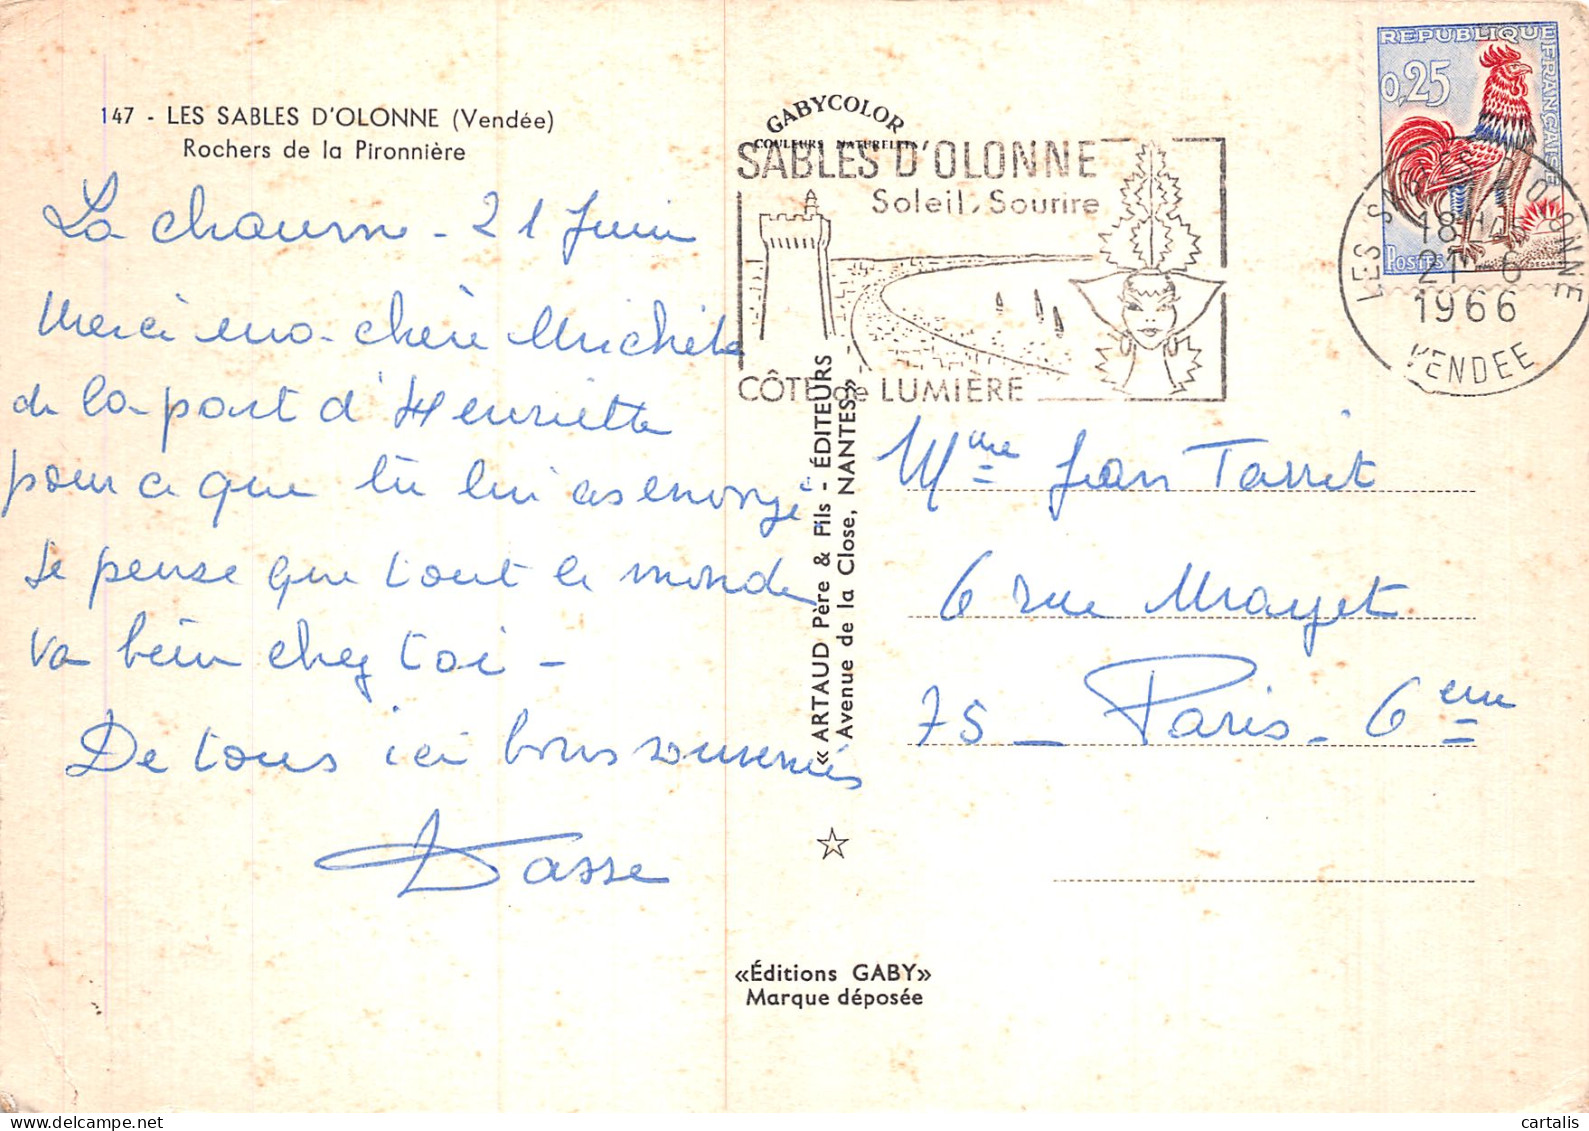 147 - LES SABLES D'OLONNE (Vendée)
Rochers de la Pironnière
La Chaume - 21 Juin
Merci ma chère Michèle
de la part d'Henriette
pour ce que tu lui as envoyé.
Je pense que tout le monde
va bien chez toi -
De tous ici bons souvenirs
GABYCOLOR
COULEURS NATURELLES
SABLES D'OLONNE
Soleil, Sourire
CÔTE de LUMIÈRE
REPUBLIQUE FRANÇAISE
0,25
POSTES
LES SABLES D'OLONNE
18H14
21-6
1966
VENDEE
« ARTAUD Père & Fils - ÉDITEURS
Avenue de la Close, NANTES»
Mme Jean Tarrit
6 rue Mayet
75 - Paris - 6eme
«Éditions GABY»
Marque déposée
cartalis
delcampe.net